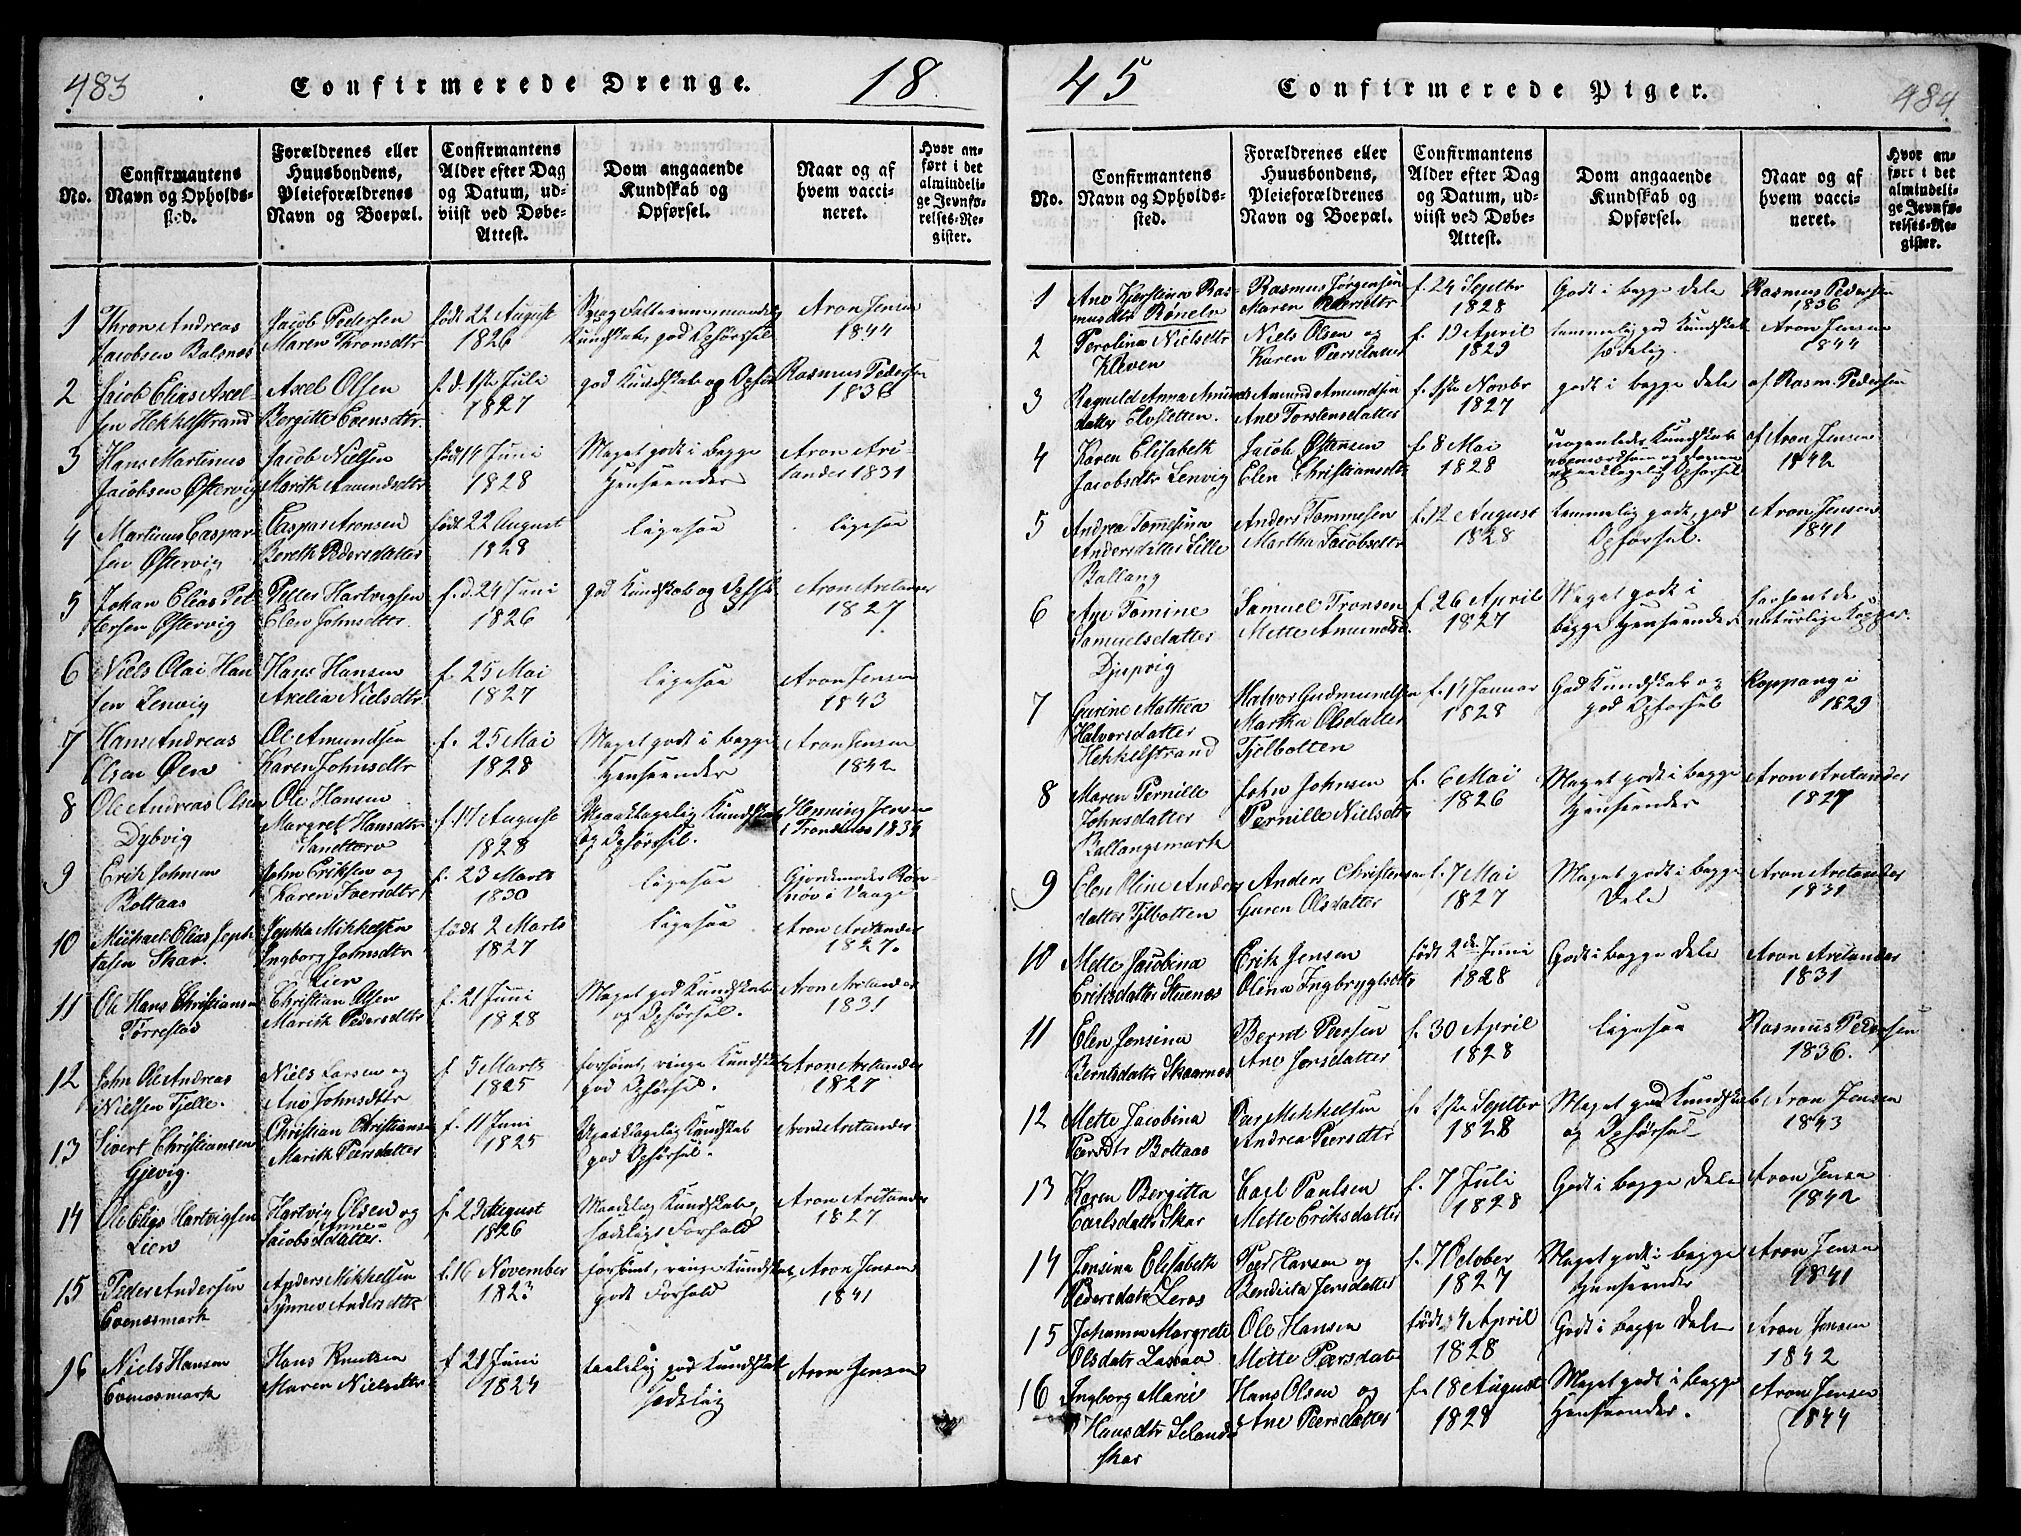 483
Confirmerede Drenge.
18
No.
Confirmantens
Navn og Opholds-
sted.
Forældrenes eller
Huusbondens,
Pleieforældrenes
Navn og Boepæl.
Confirmantens
Alder efter Dag
og Datum, ud-
viist ved Døbe-
Attest.
Dom angaaende
Kundskab og
Opførsel.
Naar og af
hvem vacci-
neret.
Hvor an-
ført i det
almindeli-
ge Jevnfø-
relses-Re-
gister.
1
Thron Andreas
Jacobsen Balsnes
Jacob Pedersen
Maren Thronsdtr
født 22 August
1826
Kundskab, god Opførsel
Aron Jensen
1844
2
Jacob Elias Axel-
sen Hekkelstrand
Axel Olsen
Bergitte Evensdtr.
f. d. 1ste Juli
1827
god Kundskab og Opfør
Rasmus Pedersen
1836
3
Hans Martinus
Jacobsen Østervig
Jacob Nielsen
Marith Amundsdtr
født 14 Juni
1828
Meget godt i begge
Henseender
Aron Are-
tander 1831
4
Martinus Caspar-
sen Østervig
Caspar Aronsen
Bereth Pedersdatter
født 22 August
1828
ligesaa
ligesaa
5
Johan Elias Pet-
tersen Østervig
Petter Hartvigsen
Elen Johnsdtr.
f. d. 24 Juni
1826
god Kundskab og Opførs
Aron Aretander
1827
6
Niels Olai Han
sen Lenvig
Hans Hansen
Axelia Nielsdtr
f. 25 Mai
1827
ligesaa
Aron Jensen
1843
7
Hans Andreas
Olsen Øen
Ole Amundsen
Karen Johnsdtr
f. 25 Mai
1828
Meget godt i begge
Henseender
Aron Jensen
1842
8
Ole Andreas Olsen
Dybvig
Ole Hansen
Margret Hansdtr
Sandtorv
f. 17 August
1828
Upaaklagelig Kundskab
og Opførsel.
Henning Jensen
i Trondenes 1834
9
Erik Johnsen
Boltaas
John Eriksen og
Karen Iversdtr
f. 23 Marts
1830
ligesaa
Gjordemoder Røn
nøv i Vaage
10
Michael Elias Jeph
tasen Skar.
Jephta Mikkelsen
Ingborg Johnsdtr
Lien
født 2 Marts
1827
ligesaa
Aron Aretander
1827.
11
Ole Hans Christiansen
Tørrestad
Christian Olsen
Marith Pedersdtr
f. 21 Juni
1828
Meget god Kundskab
og Opførsel.
Aron Aretander
1831
12
John Ole Andreas
Nielsen Tjelle.
Niels Larsen og
Ane Johnsdtr
f. 5 Marts
1825
forsømt, ringe Kundskab
god Opførsel.
Aron Aretander
1827
13
Sivert Christiansen
Gjevig.
Christian Christiansen
Marith Peersdatter
f. 11 Juni
1825
Upaaklagelig Kundskab
god Opførsel.
Aron Aretander
14
Ole Elias Hartvigsen
Lien
Hartvig Olsen og
Anne
Jacobsdatter.
f. 29 August
1826
Maadelig Kundskab,
sædeligt Forhold
Aron Aretander
1827
15
Peder Andersen
Evenesmark
Anders Mikkelsen
Synnev Andersdtr
f. 16 November
1823
forsømt, ringe Kundskab,
godt Forhold
Aron Jensen
1841
16
Niels Hansen
Evenesmark
Hans Knutsen
Maren Nielsdtr
f. 21 Juni
1824
taalelig god Kundskab
sædelig
Aron Jensen
45
Confirmerede Piger.
484
No.
Confirmantens
Navn og Opholds-
sted.
Forældrenes eller
Huusbondens,
Pleieforældrenes
Navn og Boepæl.
Confirmantens
Alder efter Dag
og Datum, ud-
viist ved Døbe-
Attest.
Dom angaaende
Kundskab og
Opførsel.
Naar og af
hvem vacci-
neret.
Hvor an-
ført i det
almindeli-
ge Jevnfø-
relses-Re-
gister.
1
Ane Kjerstina Ras-
musdtr Røneln
Rasmus Jørgensen
Maren Pedersdtr
f. 24 Septbr
1828
Godt i begge Dele
Rasmus Pedersen
1836
2
Perolina Nielsdtr
Kleven
Niels Olsen og
Karen Peersdatter
f. 19 April
1829
temmelig god Kundskab
sædelig.
Aron Jensen
1844
3
Ragnild Anna Amunds
datter Elvsletten.
Amund Amundsen
Ane Torstensdatter
f. 1ste Novbr
1827
godt i begge Dele
af Rasm. Pedersen
4
Karen Elisabeth
Jacobsdtr Lenvig
Jacob Østensen
Elen Christiansdtr
f. 8 Mai
1828
Kundskab
Opførsel
af Aron Jensen
1842
5
Andrea Tommesina
Andersdatter Lille
Ballang
Anders Tommesen
Martha Jacobsdtr
f. 12 August
1828
temmelig godt, god
Opførsel.
Aron Jensen
1841
6
Ane Tomine
Samuelsdatter
Djupvig
Samuel Tronsen
Mette Amundsd.
f. 26 April
1827
Meget godt i
begge Henseender
naturlige Kopper.
7
Gurine Mathea
Halvorsdatter
Hekkelstrand
Halvor Gudmundsen
Martha Olsdatter
Tjelbotten
f. 14 Januar
1828
God Kundskab og
god Opførsel
Koppang i
1829
8
Maren Pernille
Johnsdatter
Ballangsmark
John Johnsen
Pernille Nielsdtr
f. 6 Mai
1826
Meget godt i begge
Henseender
Aron Aretander
1827
9
Elen Oline Anders
datter Tjelbotten
Anders Christensen
Guren Olsdatter
f. 7 Mai
1827
Meget godt i begge
Dele
Aron Aretander
1831
10
Mette Jacobina
Eriksdatter Stuenes
Erik Jensen
Olina Ingbrygtsdtr
født 2de Juni
1828
Godt i begge Dele
Aron Aretander
1831
11
Elen Jensina
Berntsdatter Skaarnes
Bernt Peersen
Ane Jensdatter
f. 30 April
1828
ligesaa
Rasmus Pedersen
1836.
12
Mette Jacobina
Peersdtr Boltaas
Peer Mikkelsen
Andrea Peersdtr
f. 1ste Septbr
1828
Meget god Kundskab
og Opførsel
Aron Jensen
1843
13
Karen Bergitta
Carlsdatter Skar
Carl Paulsen
Mette Eriksdatter
f. 7 Juli
1828
Godt i begge Dele
Aron Jensen
1842
14
Jensina Elisabeth
Pedersdatr Leros
Peer Hansen og
Bendicta Jensdatter
f. 7 October
1827
Meget godt i begge
Henseender
Aron Jensen
1841
15
Johanna Margrete
Olsdatr Lassaa
Ole Hansen
Mette Peersdatr
født 4 April
1828
Godt i begge Dele
Aron Jensen
1842
16
Ingborg Marie
Hansdtr Lelander
Skar
Hans Olsen og
Ane Peersdatter
f. 18 August
1828
Meget godt i begge
Henseender.
Aron Jensen
1844